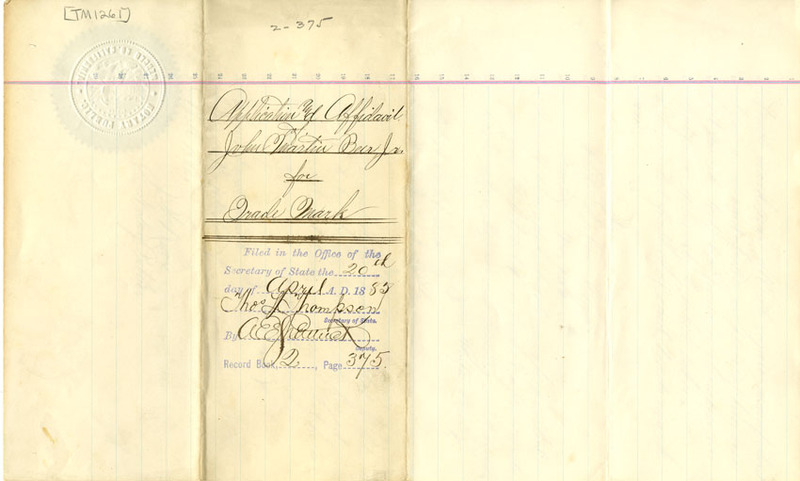 [TM1265]
2-375
Application & Affidavit
of
John Martin Beer Jr.
for
Trade Mark
Filed in the Office of the
Secretary of State the 20th
day of April A. D. 1885
Thos L Thompson
Secretary of State.
By
Deputy.
Record Book, 2, Page 375.
NOTARY PUBLIC